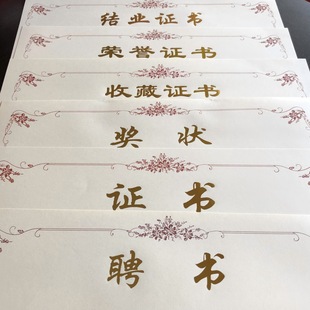 结业证书
荣誉证书
收藏证书
奖状
证书
聘书